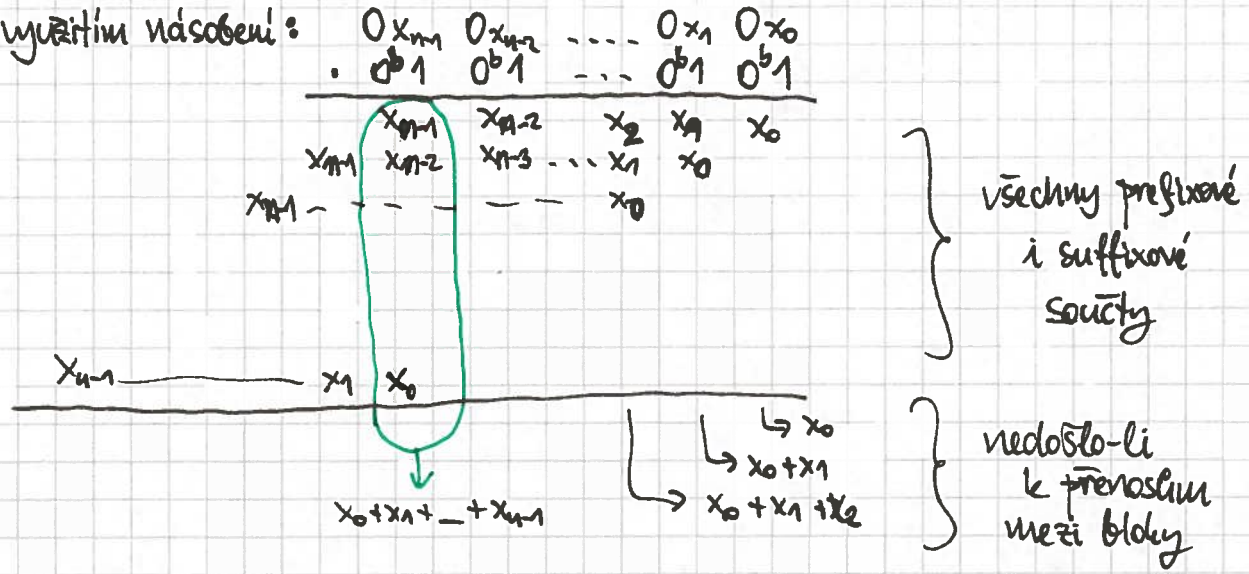 využitím násobení: 0x_{n-1} 0x_{n-2} .... 0x_1 0x_0
· 0^b1 0^b1 ... 0^b1 0^b1
x_{n-1} x_{n-2} x_2 x_1 x_0
x_{n-1} x_{n-2} x_{n-3} ... x_1 x_0
x_{n-1} - - - - - x_0
všechny prefixové
i suffixové
součty
x_{n-1} x_1 x_0
↳ x_0
↳ x_0+x_1
↳ x_0+x_1+x_2
x_0+x_1+_+x_{n-1}
nedošlo-li
k přenosům
mezi bloky